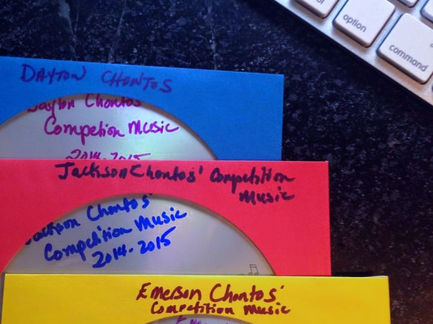 option
command
DAYTON CHONTOS
Dayton Chontos
Competion Music
2014-2015
Jackson Chontos' Competition
Music
Jackson Chontos'
Competition Music
2014-2015
Emerson Chontos'
Competition Music